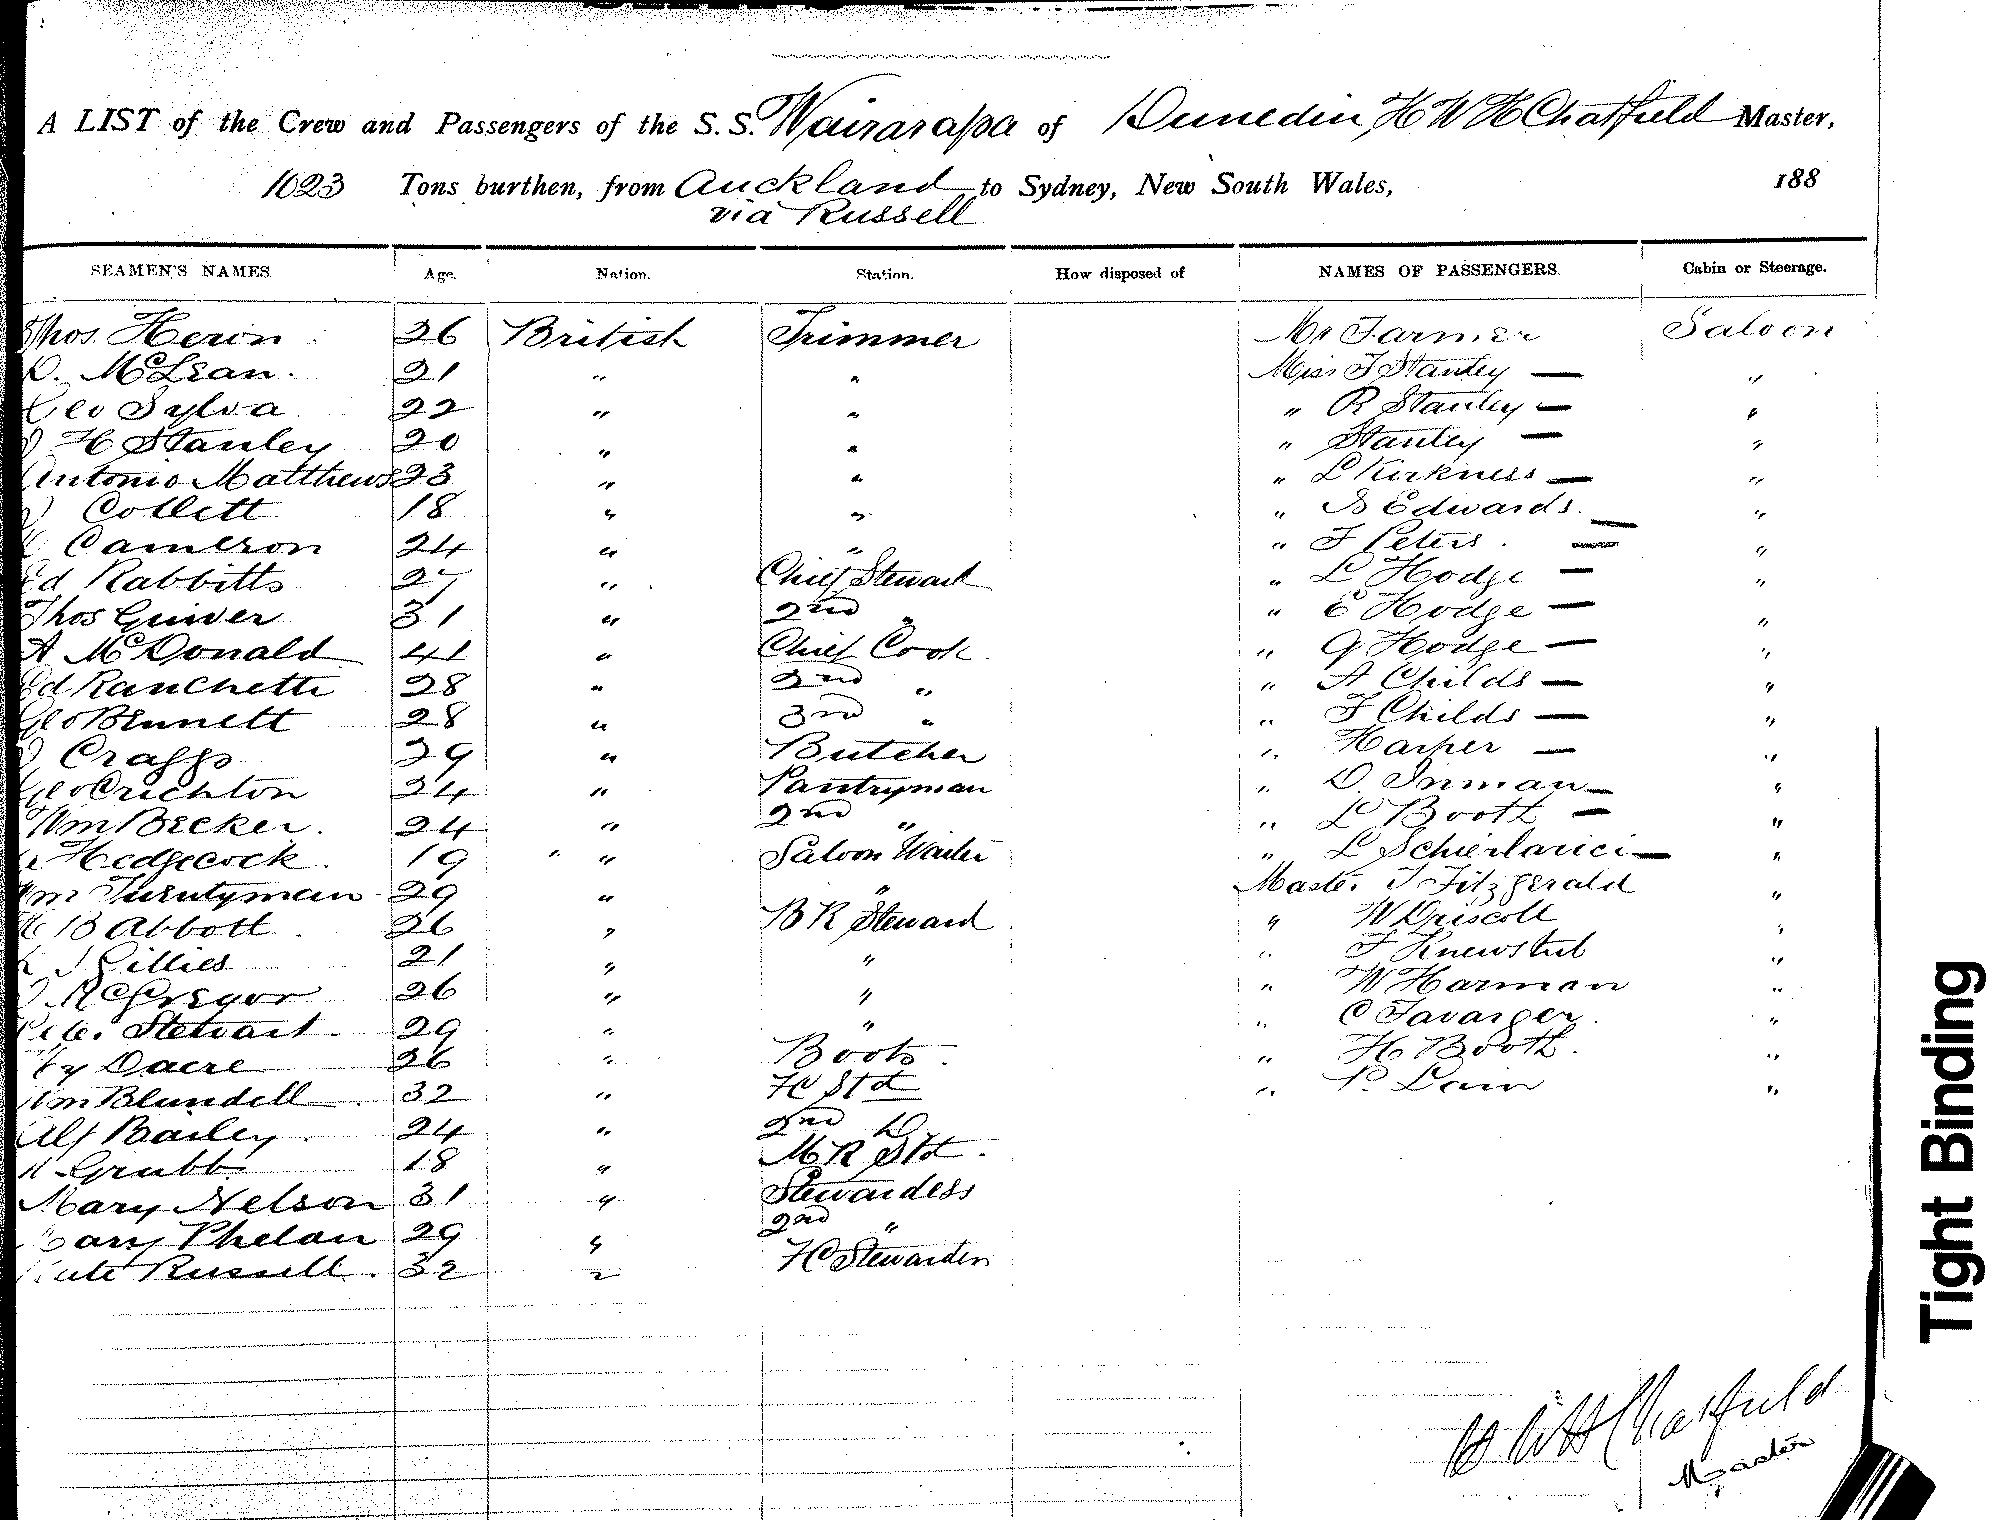 A LIST of the Crew and Passengers of the S.S. Wairarapa of Dunedin, H W H Chatfield Master,
1023 Tons burthen, from Auckland to Sydney, New South Wales, 188
via Russell
SEAMEN'S NAMES. Age. Nation. Station. How disposed of NAMES OF PASSENGERS. Cabin or Steerage.
Thos. Heron 26 British Trimmer Mr Farmer Saloon
D. McLean. 21 " " Miss F Stanley — "
Geo Sylva 22 " " " R Stanley — "
H Stanley 20 " " " Stanley — "
Antonio Matthews 23 " " " L Kirkness — "
Collett 18 " " " B Edwards. — "
Cameron 24 " " " F Peters. — "
Ed Rabbitts 27 " Chief Steward " L Hodge — "
Thos Guiver 31 " 2nd " " E Hodge — "
A McDonald 41 " Chief Cook " G Hodge — "
Ed Ranchette 28 " 2nd " " A Childs — "
Geo Bennett 28 " 3rd " " F Childs — "
Craggs 29 " Butcher " Harper — "
Geo Crichton 24 " Pantryman " D. Inman — "
Wm Becker. 24 " 2nd " " L Booth — "
Hedgecock. 19 " Saloon Waiter " L —  "
Wm 29 " " Master T Fitzgerald "
H B Abbott 26 " B R Steward " W Driscoll "
J Gillies 21 " " " F Knewstub "
McGregor 26 " " " W Harman "
Stewart 29 " " " C Favarger. "
Hy Dacre 26 " Boots. " H Booth. "
Wm Blundell 32 " F C Std " P. Lain "
Alf Bailey 24 " 2nd D
Grubb 18 " M R Std.
Mary Nelson 31 " Stewardess
Mary Phelan 29 " 2nd "
Kate Russell. 32 " F C Stewardess
H W H Chatfield
Master
Tight Binding